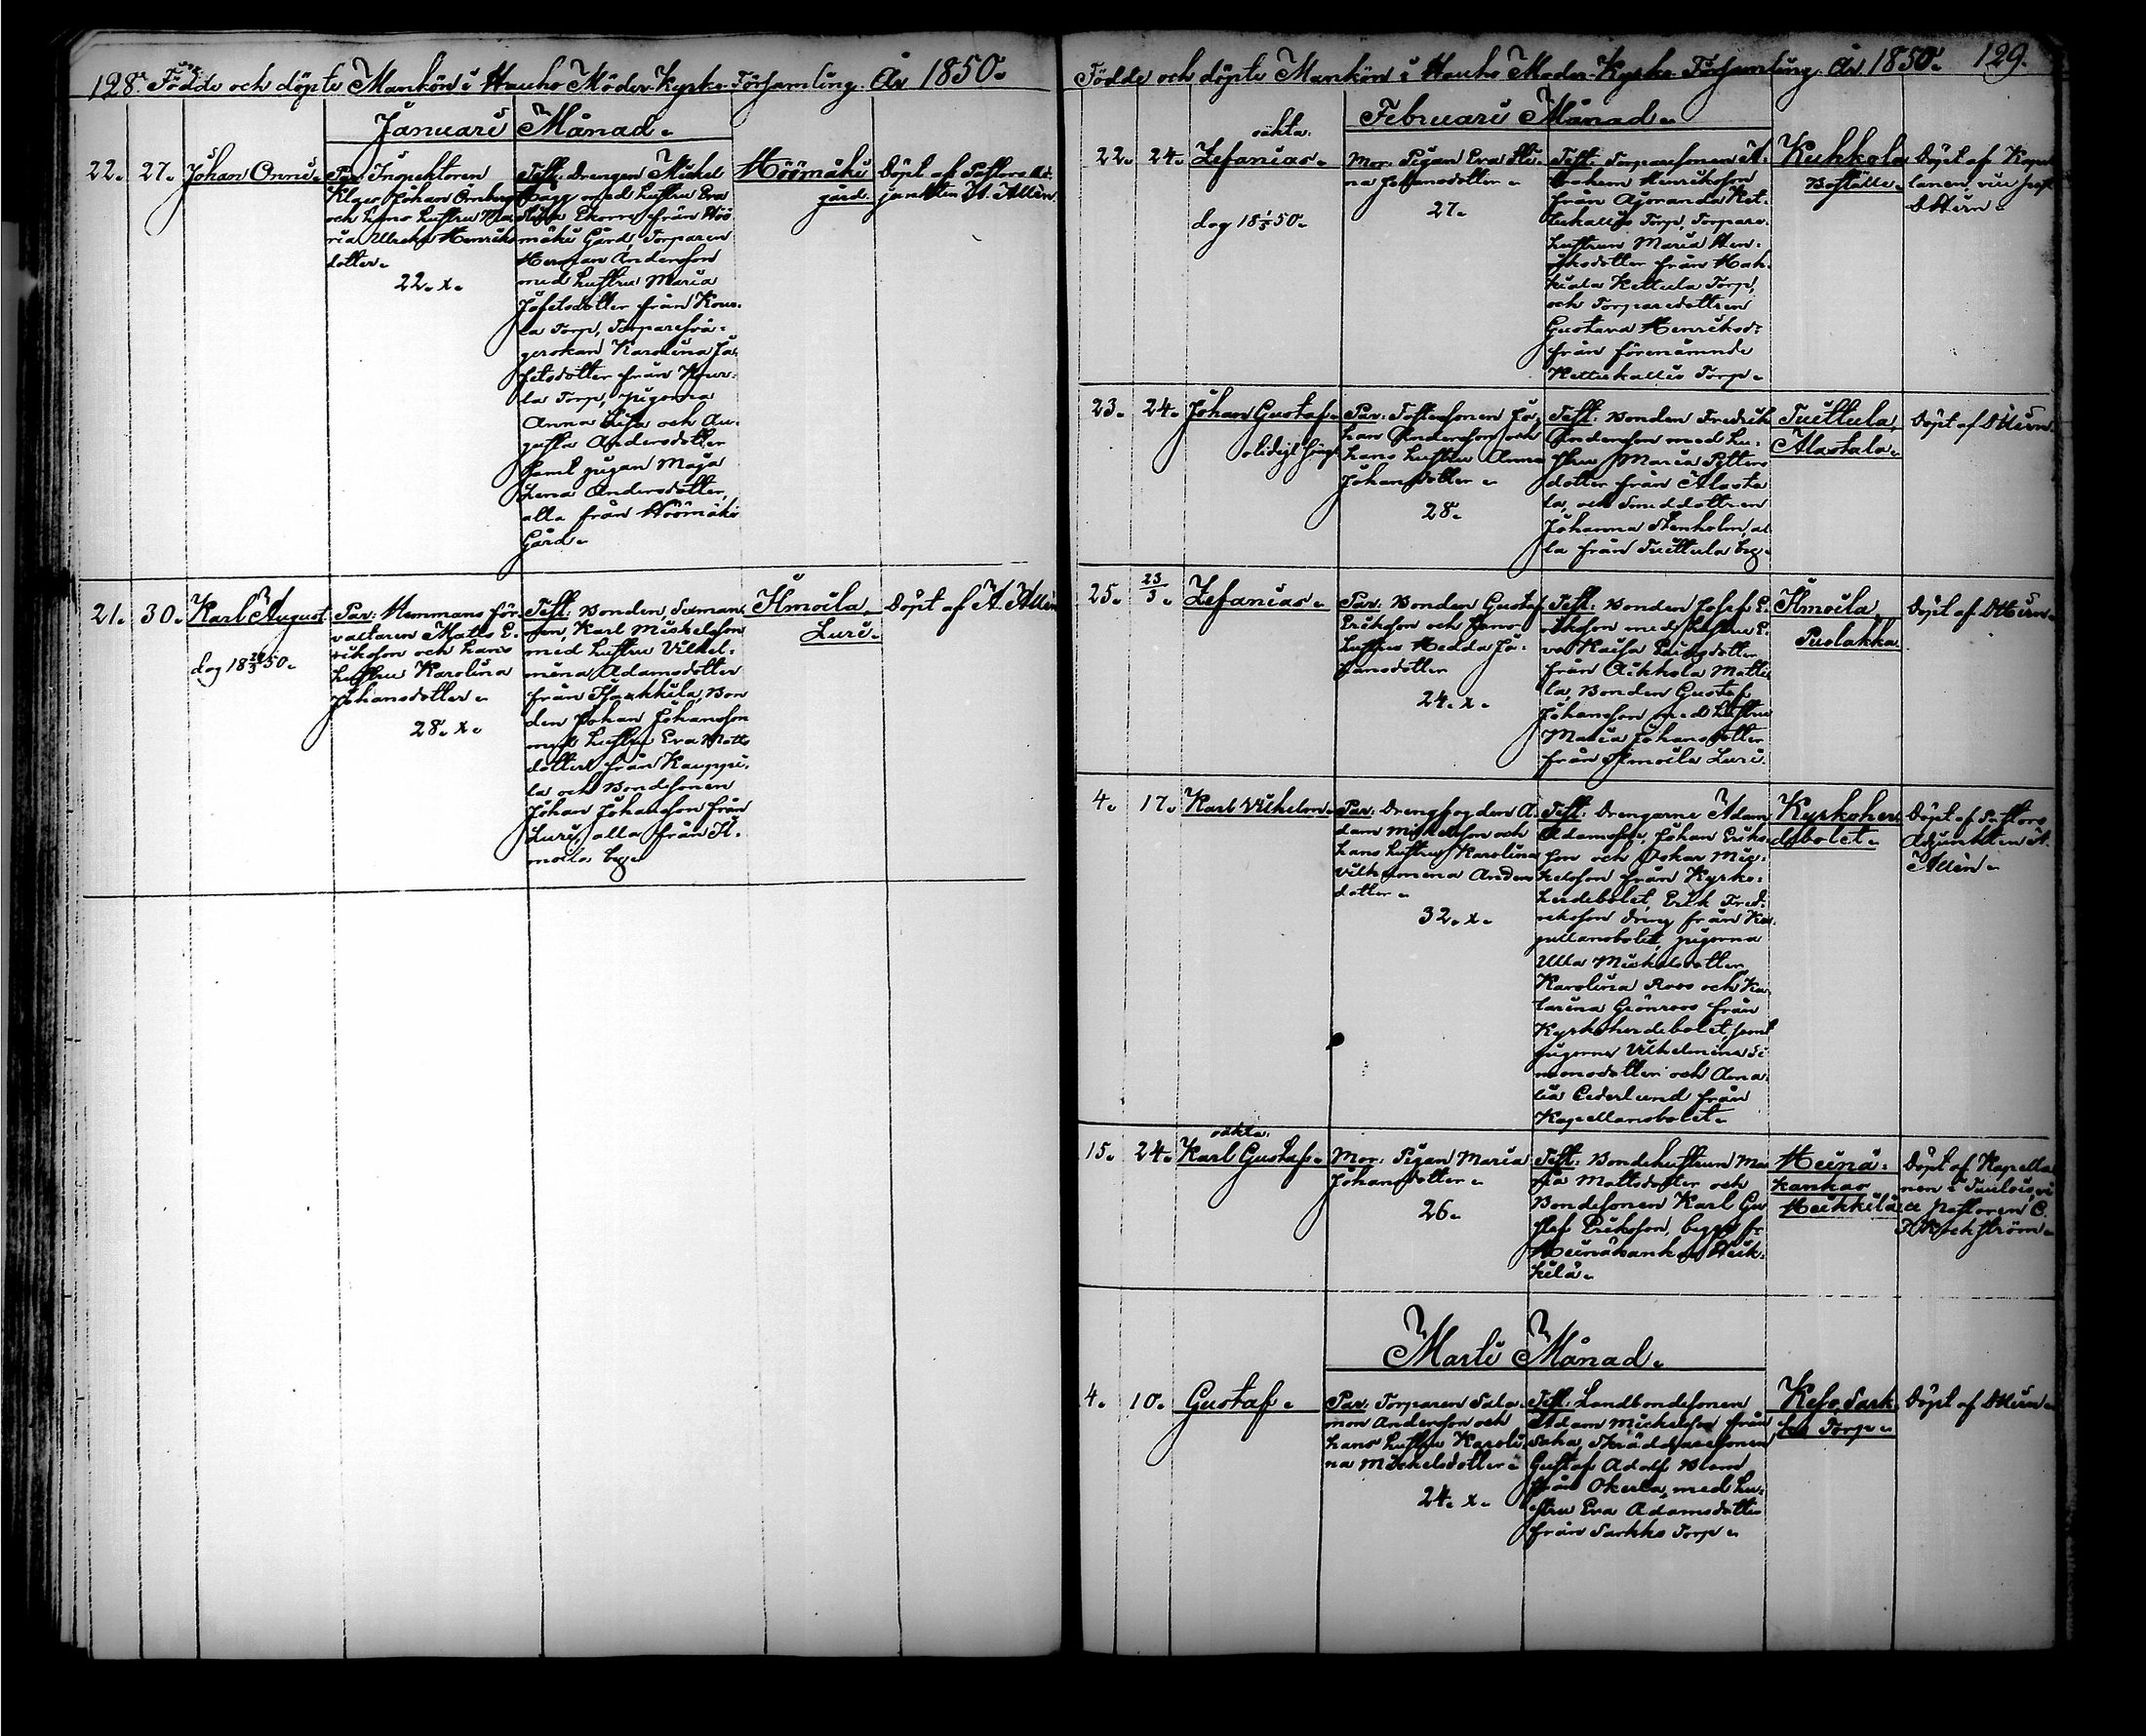 128. Födde och döpte Mankön i Hauho Moder-Kyrko-Församling. År 1850.
Januari Månad.
22. 27. Johan Onni.
Par: Inspektoren
Klaes Johan Örnberg
och hans hustru Ma-
ria Ulrika Henriks-
dotter.
22. x.
Test: Drengen Mickel
med hustru Eva
från Höö-
mäki Gård, Torparen
Herman Andersson
med hustru Maria
Jofetsdotter från Kour-
la Torp, Torparesvä-
gerskan Karolina Jo-
fetsdotter från Kour-
la Torp, pigorna
Anna Lisa och Au-
gusta Andersdotter
samt pigan Maja
Lena Andersdotter,
alla från Höömäki
Gård.
Höömäki
gård.
Döpt af Pastors Ad-
junkten A. Allén.
21. 30. Karl August.
dog 50.
Par: Hemmans för-
valtaren Matts E-
riksson och hans
hustru Karolina
Johansdotter.
28. x.
Test: Bonden Sexman-
nen, Karl Mickelsson
med hustru Vilhel-
mina Adamsdotter
från Bon-
den Johan Johansson
med hustru Eva Matts-
dotter från Kauppi-
la och Bondesonen
Johan Johansson från
Luri, alla från Il-
moila by.
Ilmoila,
Luri.
Döpt af A. Allén
Födde och döpte Mankön i Hauho Moder-Kyrko-Församling. År 1850. 129.
Februari Månad.
22. 24. oäkta.
Zefanias.
dog 50.
Mor: Pigan Eva Sti-
na Johansdotter.
27.
Test: Torparesonen A-
braham Henriksson
från Ajoranda Ket-
tukallio Torp, Torpare-
hustrun Maria Hen-
riksdotter från Hah-
kiala Kettula Torp,
och Torparedottren
Gustava Henriksd:r
från förenämnde
Kettukallio Torp.
Kukkola
Boställe.
Döpt af Kapel-
lanen, vice past.
23. 24. Johan Gustaf.
Par: Johan
Andersson och
hans hustru Anna
Johansdotter.
28.
Test: Bonden Fredrik
Andersson med hu-
stru Maria Petters-
dotter från Alasta-
lo, och Smeddottren
Johanna Stenholm, al-
la från Tuittula by.
Tuittula,
Alastalo.
Döpt af
25. 23/3 Zefanias.
Par: Bonden Gustaf
Eriksson och hans
hustru Hedda Jo-
hansdotter
24. x.
Test: Bonden Josef E-
riksson med hustru E-
va Kaisa Eriksdotter
från Matti-
la, Bonden Gustaf
Johansson med hustru
Maria Johansdotter
från Ilmoila Luri.
Ilmoila,
Puolakka.
Döpt af
4. 17. Karl Vilhelm.
Par: Drengfogden A-
dam Mickelsson och
hans hustru Karolina
Vilhelmina Anders-
dotter.
32. x.
Test: Drengarne Adam
Adamsson, Johan Eriks-
son och Oskar Mic-
kelsson från Kyrko-
herdebolet, Erik Fred-
riksson dreng från Ka-
pellansbolet, pigorna
Ulla Mickelsdotter
Karolina Roos och Ka-
tarina Grönroos från
Kyrkoherdebolet, samt
pigorna Vilhelmina Si-
monsdotter och Ama-
lia Cederlund från
Kapellansbolet.
Kyrkoher-
debolet.
Döpt af Pastors
Adjunkten A.
Allén.
15. 24. oäkta.
Karl Gustaf.
Mor: Pigan Maria
Johansdotter.
26.
Test: Bondehustrun Ma-
ria Mattsdotter och
Bondesonen Karl Gu-
staf Eriksson, begge fr:
Heinäkankas Heik-
kilä.
Heinä-
kankas
Heikkilä.
Döpt af Kapella-
nen i Tuulois, vi-
ce pastoren C.
Marti Månad.
4. 10. Gustaf.
Par: Torparen Salo-
mon Andersson och
hans hustru Karoli-
na Mickelsdotter.
24. x.
Test: Landbondesonen
Adam Mickelsson från
Skräddaresonen
Gustaf Adolf
från Okerla, med hu-
stru Eva Adamsdotter
från Sarkko Torp.
Torp.
Döpt af